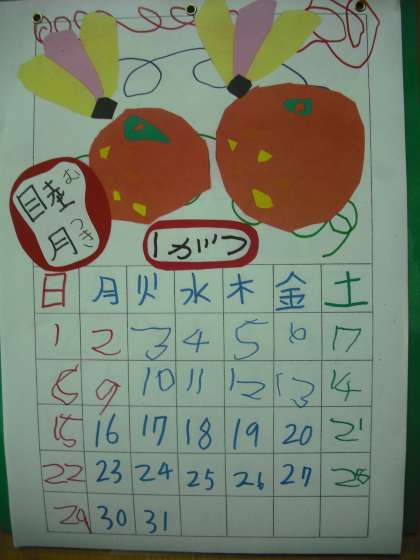 睦月
むつき
1がつ
日 月 火 水 木 金 土
1 2 3 4 5 6 7
8 9 10 11 12 13 14
15 16 17 18 19 20 21
22 23 24 25 26 27 28
29 30 31